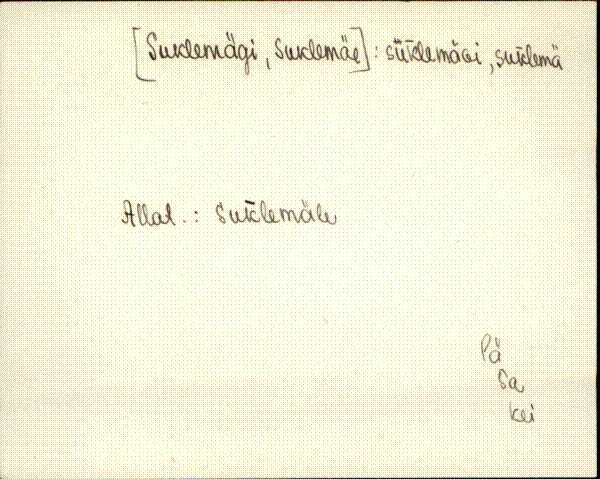 [Suklemägi, Suklemäe] : sūk̄lemäGi, suk̄lemä
Allat. : suk̄lemäle
Pä
Sa
kei